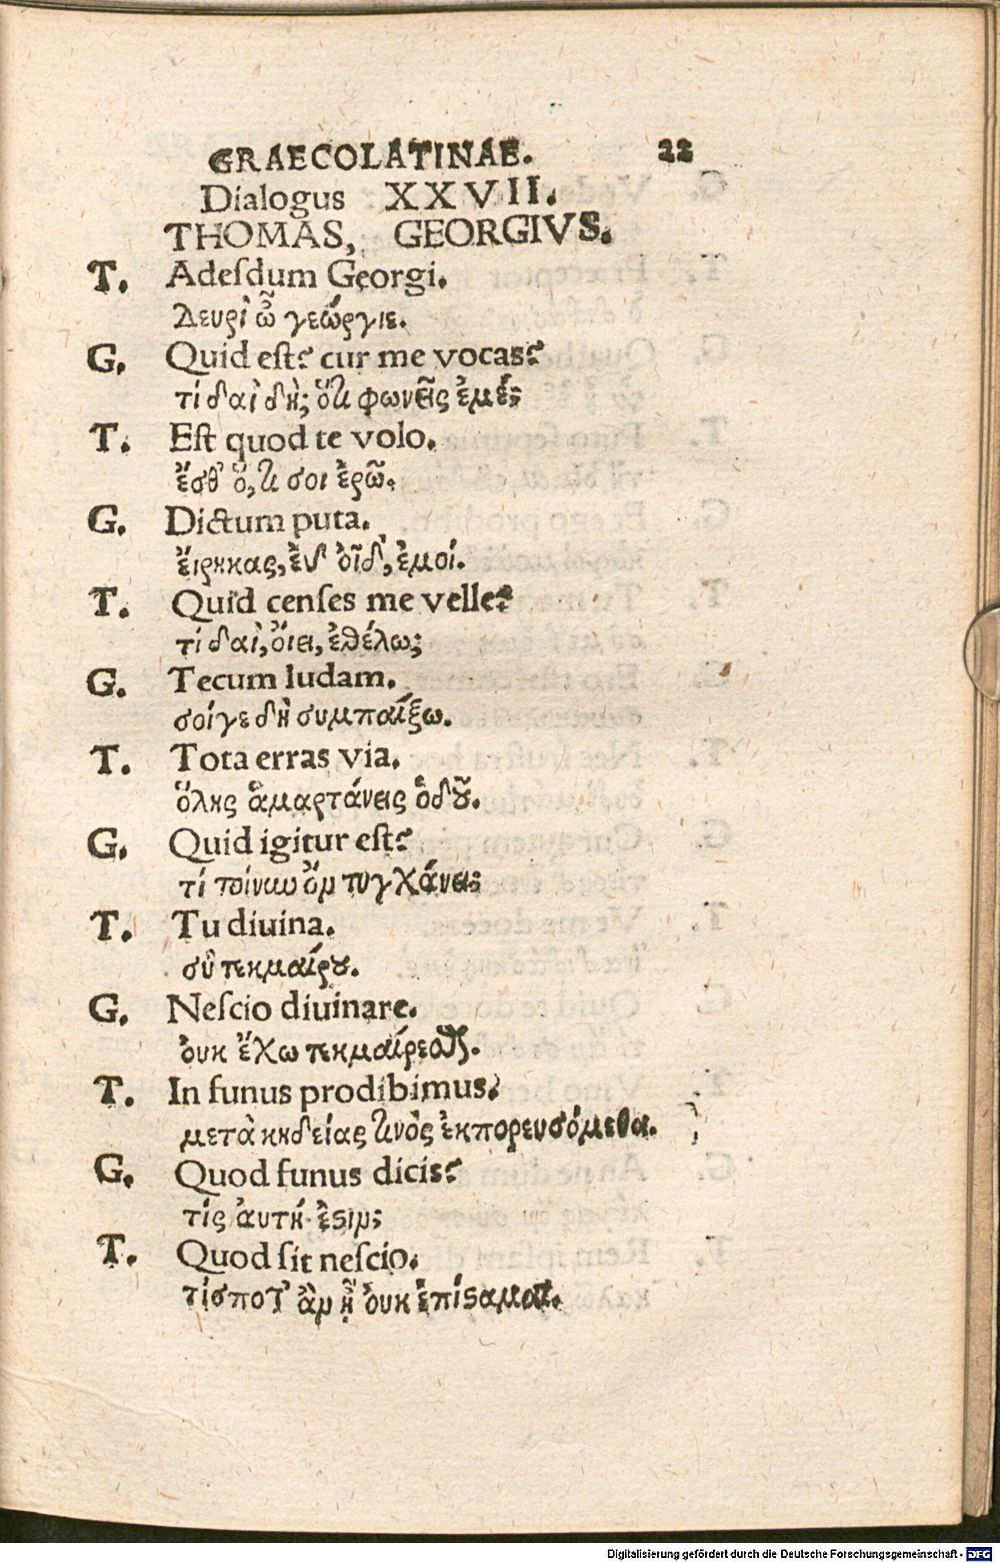 GRAECOLATINAE. 22
Dialogus XXVII.
THOMAS, GEORGIVS.
T. Adeſdum Georgi.
Δευρὶ ὦ γεώργιε.
G. Quid eſt? cur me vocas?
τί δαὶ δὴ; ὅτι φωνεῖς ἐμέ;
T. Eſt quod te volo.
ἔσθ᾽ ὅ,τι σοι ἐρῶ.
G. Dictum puta.
ἔιρηκας, ἐν οἶδ᾽, ἐμοί.
T. Quid cenſes me velle?
τί δαὶ, ὄιει, ἐθέλω;
G. Tecum ludam.
σοίγε δὴ συμπαίξω.
T. Tota erras via.
ὅλης ἁμαρτάνεις ὁδοῦ.
G. Quid igitur eſt?
τί τοίνυν ὂν τυγχάνει;
T. Tu diuina.
σὺ τεκμαίρου.
G. Neſcio diuinare.
ὀυκ ἔχω τεκμαίρεσθαι.
T. In funus prodibimus?
μετὰ κηδείας τινὸς ἐκπορευσόμεθα.
G. Quod funus dicis?
τίς ἀυτή ἐστιν;
T. Quod ſit neſcio.
τίσποτ᾽ ἂν ᾖ ὀυκ ἐπίσταμαι.
Digitalisierung gefördert durch die Deutsche Forschungsgemeinschaft - DFG